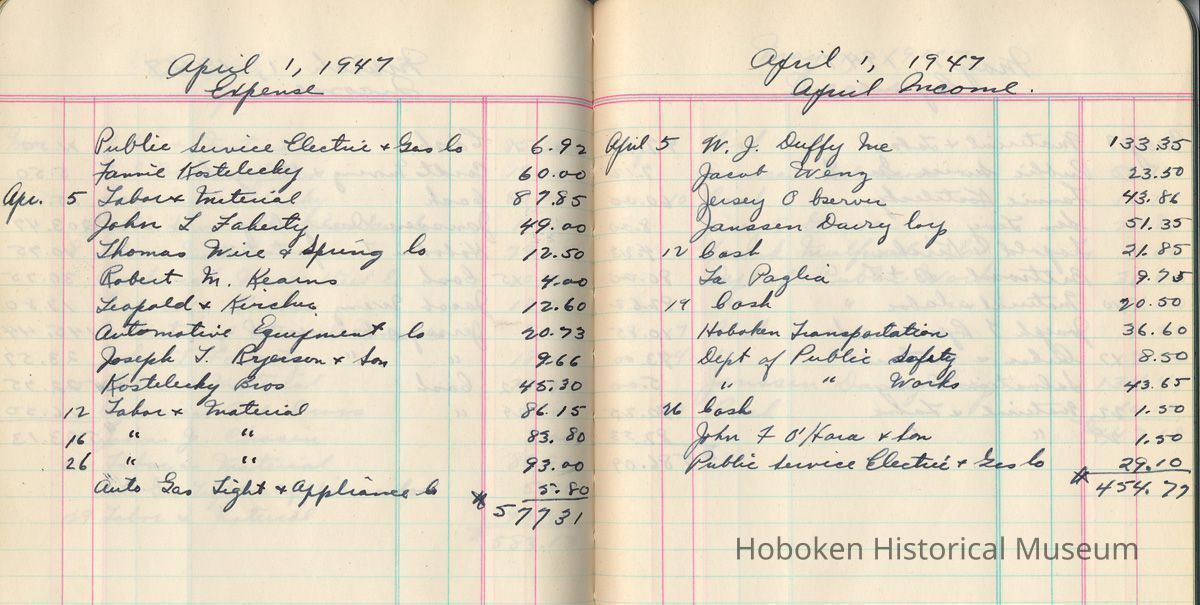 April 1, 1947
Expense
Public Service Electric + Gas Co 6.92
Fannie Kostelecky 60.00
Apr. 5 Labor + Material 87.85
John L Faherty 49.00
Thomas Wire + Spring Co 12.50
Robert M. Kearns 4.00
Leopold + Kirchn 12.60
Automotive Equipment Co 20.73
Joseph T. Ryerson + Son 9.66
Kostelecky Bros 45.30
12 Labor + Material 86.15
16 " " 83.80
26 " " 93.00
Auto Gas Light + Appliance Co 5.80
577 31
April 1, 1947
April Income.
April 5 W. J. Duffy Inc 133.35
Jacob Wenz 23.50
Jersey Observer 43.86
Janssen Dairy Corp 51.35
12 Cash 21.85
La Paglia 9.75
19 Cash 20.50
Hoboken Transportation 36.60
Dept of Public Safety 8.50
" " Works 43.65
26 Cash 1.50
John F O'Hara + Son 1.50
Public Service Electric + Gas Co 29.10
454.79
Hoboken Historical Museum